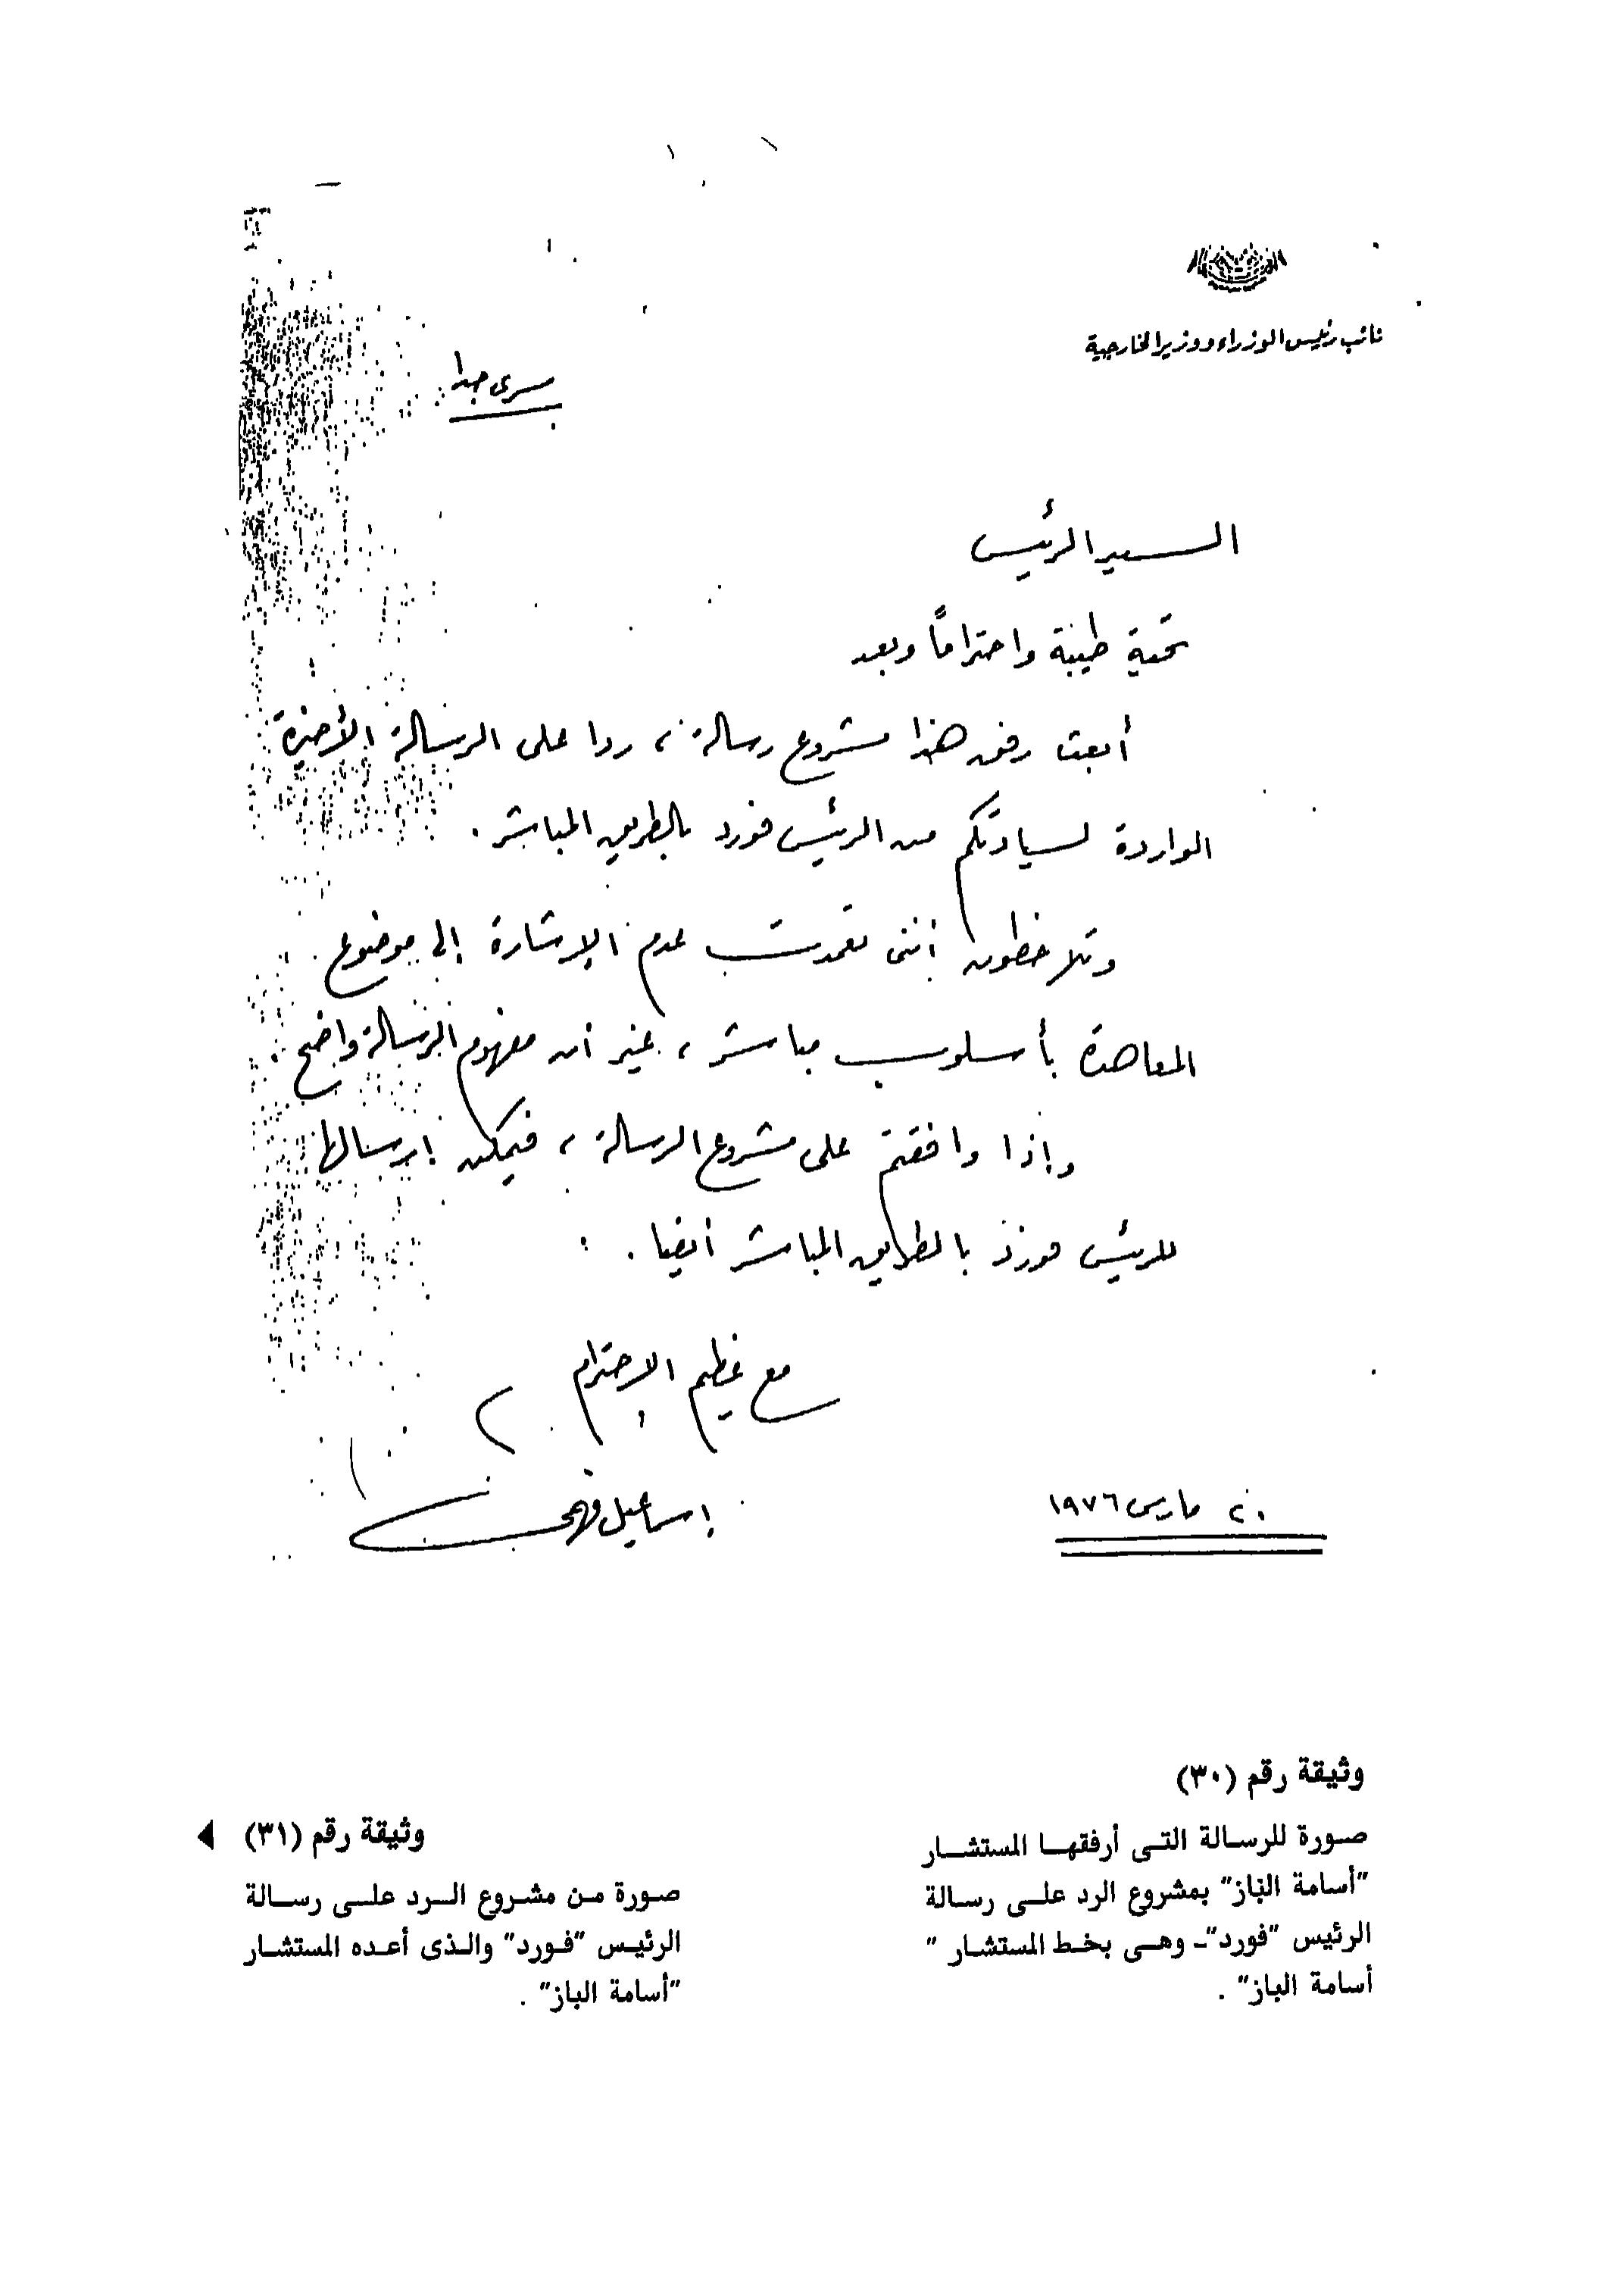 نائب رئيس الوزراء ووزير الخارجية
سرى جدا
السيد الرئيس
تحية طيبة واحتراماً وبعد
أبعث رفق هذا مشروع رسالة ، ردا على الرسالة الأخيرة
الواردة لسيادتكم من الرئيس فورد بالطريق المباشر .
وتلاحظون أننى تعمدت عدم الإشارة إلى موضوع
المعاهدة بأسلوب مباشر ، غير أن مفهوم الرسالة واضح .
وإذا وافقتم على مشروع الرسالة ، فيمكن إرسالها
للرئيس فورد بالطريق المباشر أيضا .
مع عظيم الاحترام
إسماعيل فهمى
٢٠ مارس ١٩٧٦
وثيقة رقم (٣٠)
صورة للرسالة التى أرفقها المستشار
"أسامة الباز" بمشروع الرد على رسالة
الرئيس "فورد"ـ وهى بخط المستشار "
أسامة الباز" .
وثيقة رقم (٣١)
صورة من مشروع الرد على رسالة
الرئيس "فورد" والذى أعده المستشار
"أسامة الباز" .